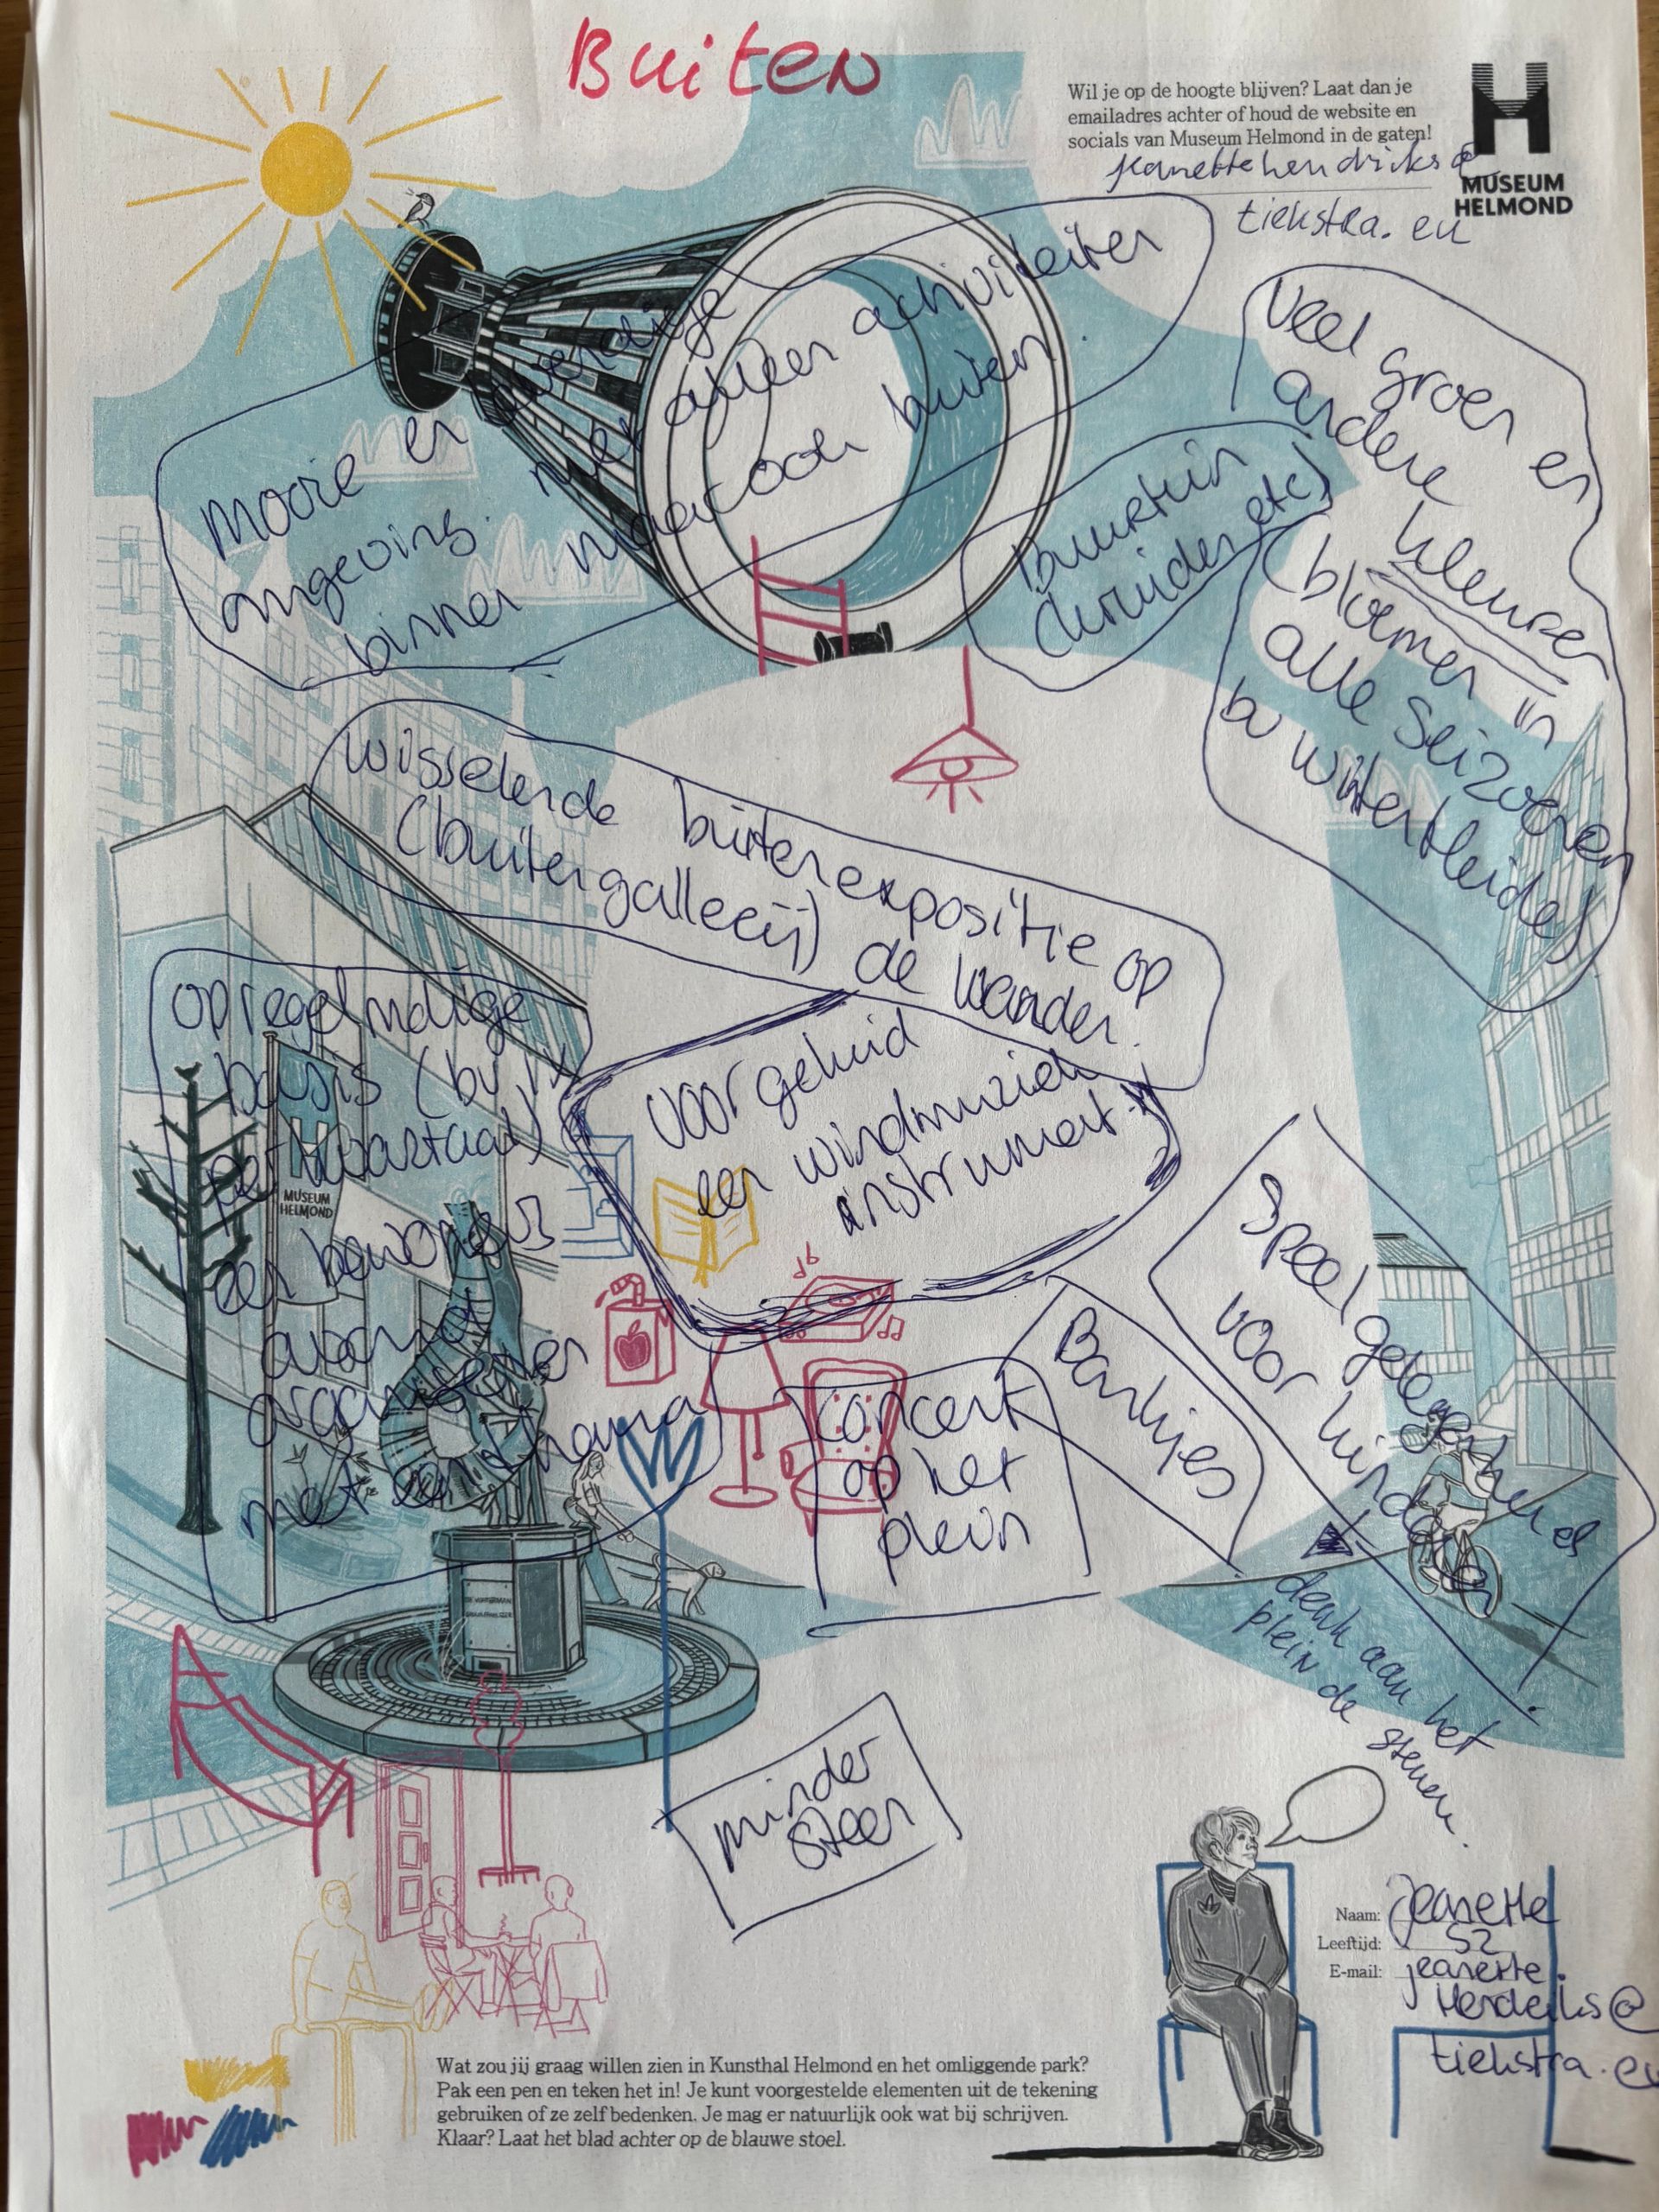 Buiten
Wil je op de hoogte blijven? Laat dan je
emailadres achter of houd de website en
socials van Museum Helmond in de gaten!
jeanettehendriks@
tiekstra.eu
MUSEUM
HELMOND
Mooie en levendige
omgeving. niet alleen activiteiten
binnen maar ook buiten.
Veel groen en
andere kleuren
(bloemen in
alle seizoenen
bv winterheide)
buurttuin
(kruiden etc)
wisselende buitenexpositie op
(buitengallerij) de wanden.
op regelmatige
basis (bv 1x
per kwartaal)
een bewoners
avond
organiseren
met een thema
MUSEUM
HELMOND
voor geluid
een windmuziek
instrument
Speelgelegenheid
voor kinderen
denk aan het
plein de stenen.
Bankjes
concert
op het
plein
minder
steen
Naam: Jeanette
Leeftijd: 52
E-mail: jeanette.
Hendriks@
tiekstra.eu
Wat zou jij graag willen zien in Kunsthal Helmond en het omliggende park?
Pak een pen en teken het in! Je kunt voorgestelde elementen uit de tekening
gebruiken of ze zelf bedenken. Je mag er natuurlijk ook wat bij schrijven.
Klaar? Laat het blad achter op de blauwe stoel.